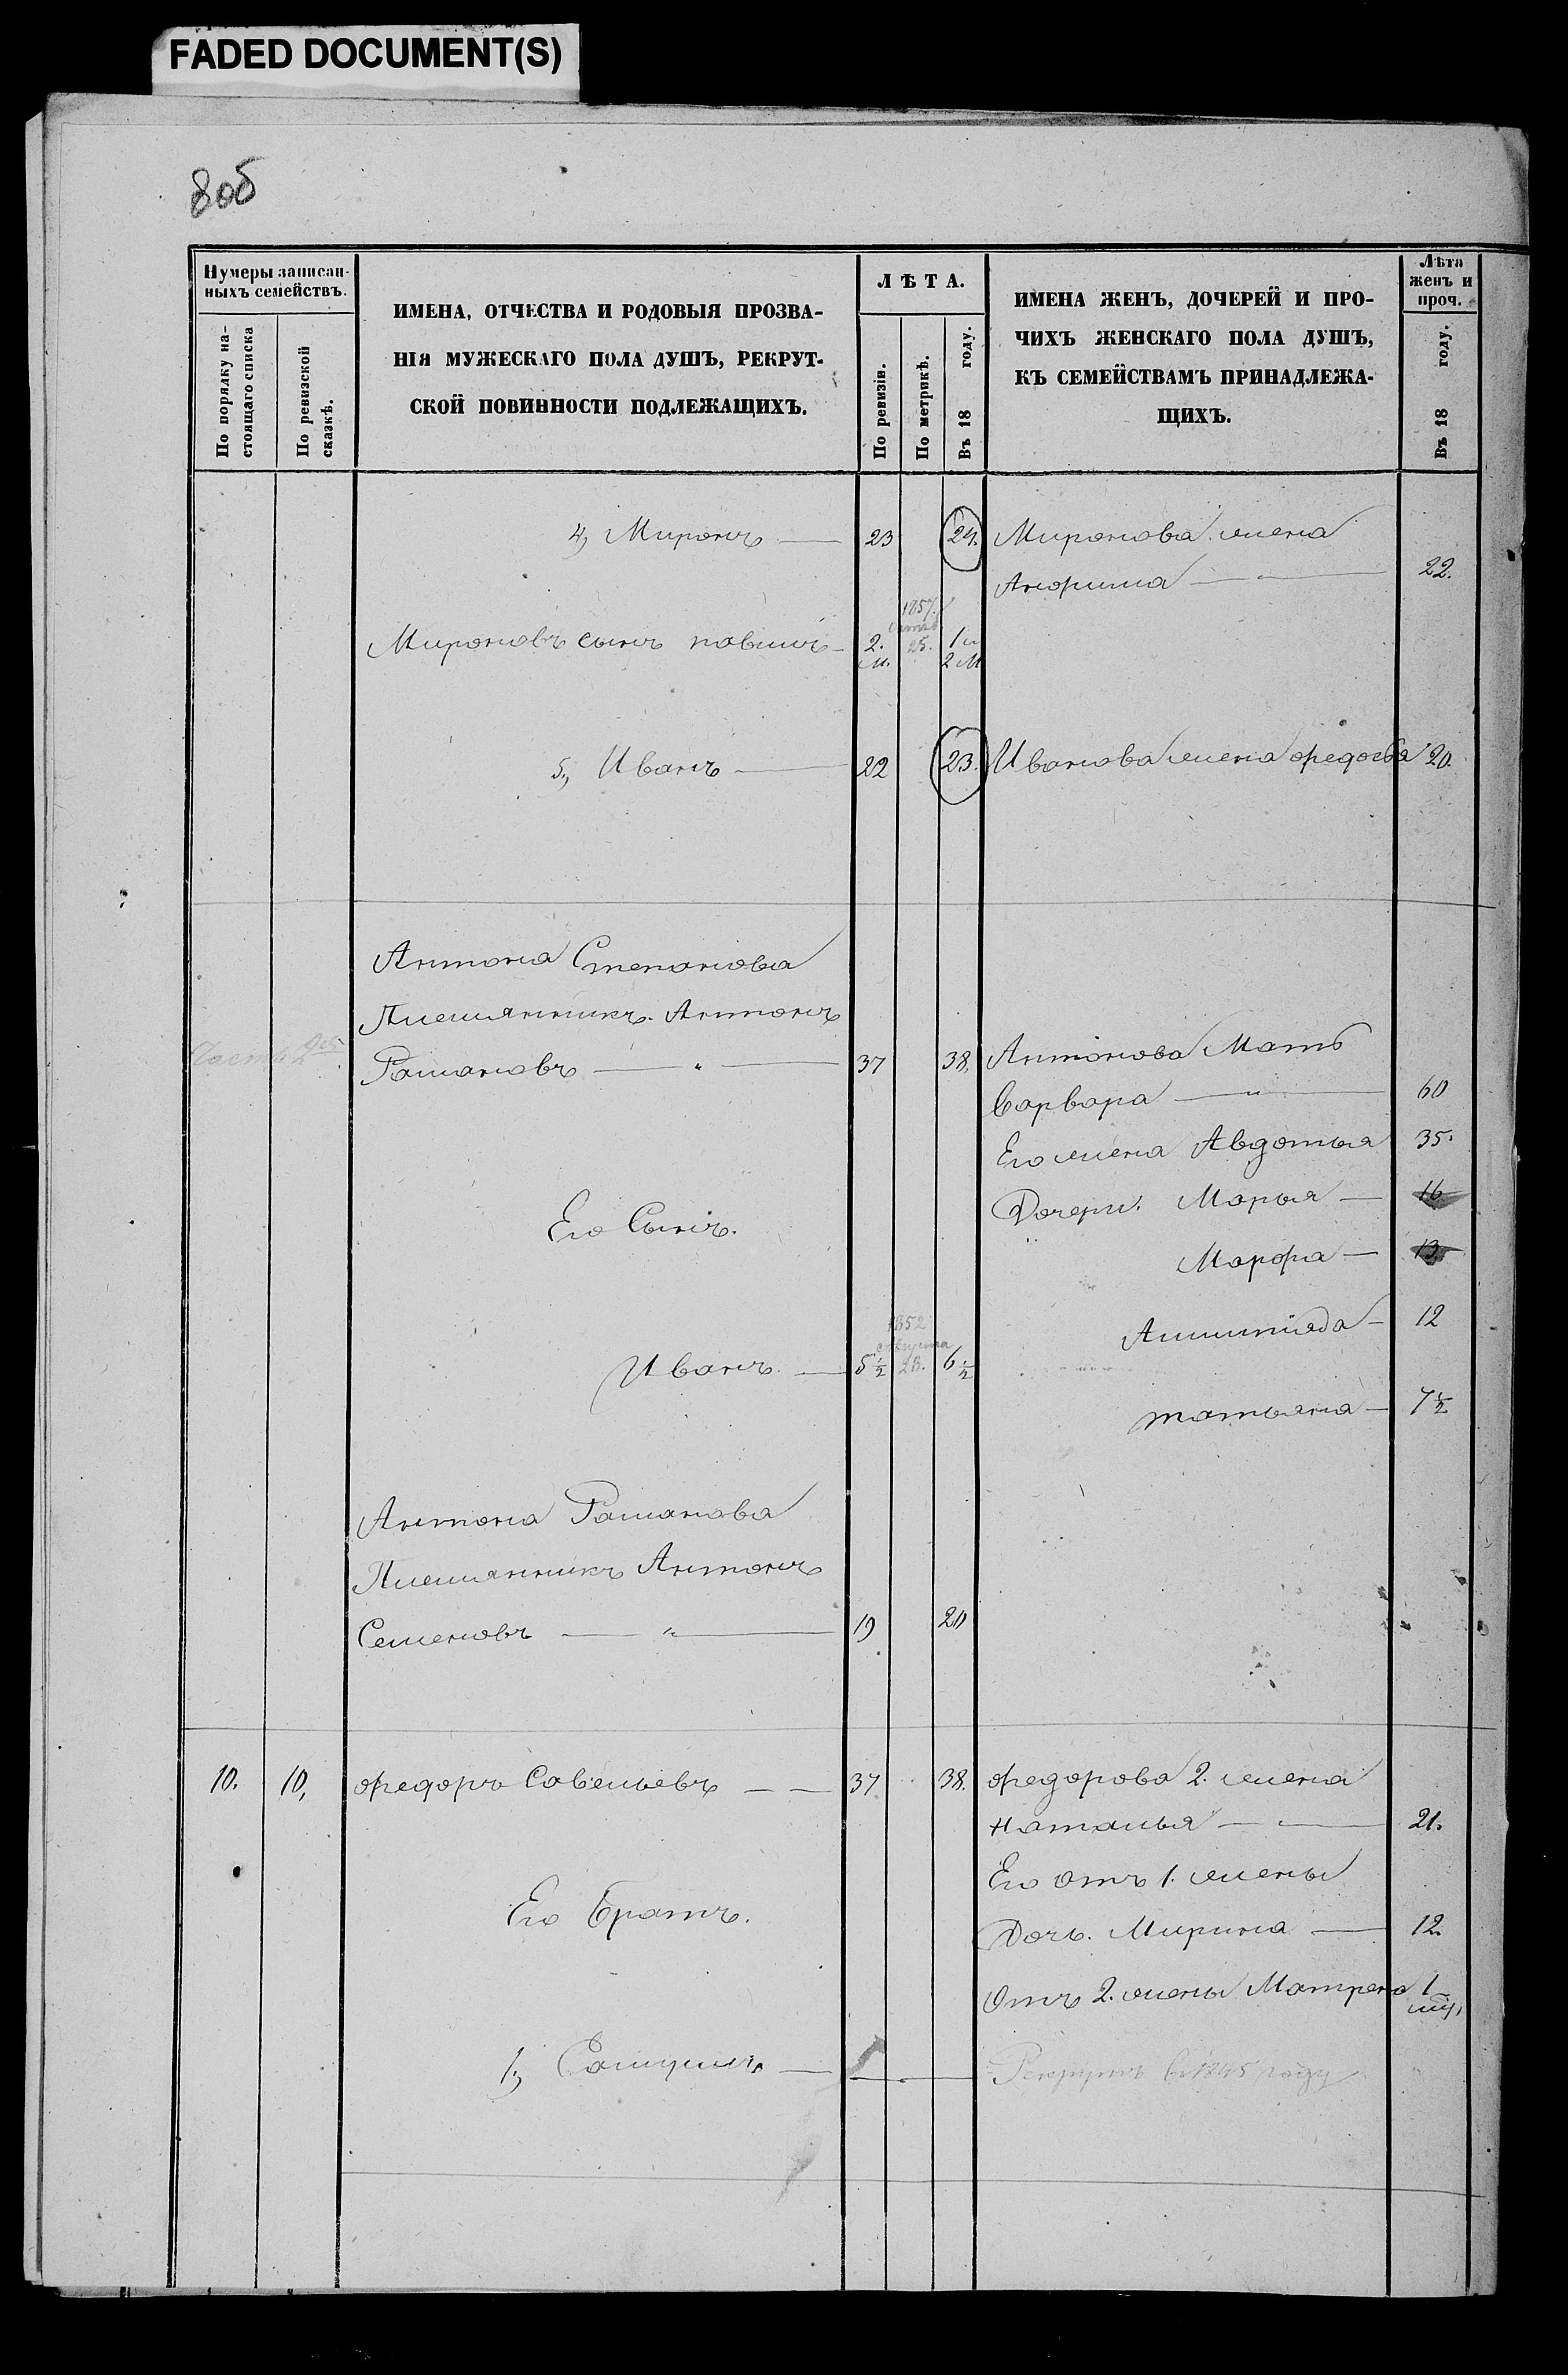 FADED DOCUMENT(S)
8об
Нумеры записан-
ныхъ семействъ.
По порядку на-
стоящаго списка
По ревизской
сказкѣ.
ИМЕНА, ОТЧЕСТВА И РОДОВЫЯ ПРОЗВА-
НІЯ МУЖЕСКАГО ПОЛА ДУШЪ, РЕКРУТ-
СКОЙ ПОВИННОСТИ ПОДЛЕЖАЩИХЪ.
ЛѢТА.
По ревизіи.
По метрикѣ.
Въ 18 году.
ИМЕНА ЖЕНЪ, ДОЧЕРЕЙ И ПРО-
ЧИХЪ ЖЕНСКАГО ПОЛА ДУШЪ,
КЪ СЕМЕЙСТВАМЪ ПРИНАДЛЕЖА-
ЩИХЪ.
Лѣта
женъ и
проч.
Въ 18 году.
4, Миронъ — 23 24. Миронова жена
22.
1857.
Мироновъ сынъ павилъ 2. 25. 1 и
м. 2 м
5, Иванъ — 22 23. Иванова жена федосья 20.
Антона Степанова
Племянникъ Антонъ
Часть 2я
Рамановъ — " — 37 38, Антонова Мать
Варвара — " — 60
Его жена Авдотья 35.
Дочери. Марья — 16
Его Сынъ.
Марфа — 13
12
1852
августа
Иванъ — 5 1/2 23. 6 1/2
татьяна — 7 1/2
Антона Раманова
Племянникъ Антонъ
Семеновъ — " — 19 20
10. 10, федоръ Савельевъ — — 37 38. федорова 2. жена
наталья — 21.
Его отъ 1. жены
Его Братъ.
Дочь. Мирина — 12.
Отъ 2. жены Матрена 1
1, Самуилъ — Рекрутъ въ 1845 году